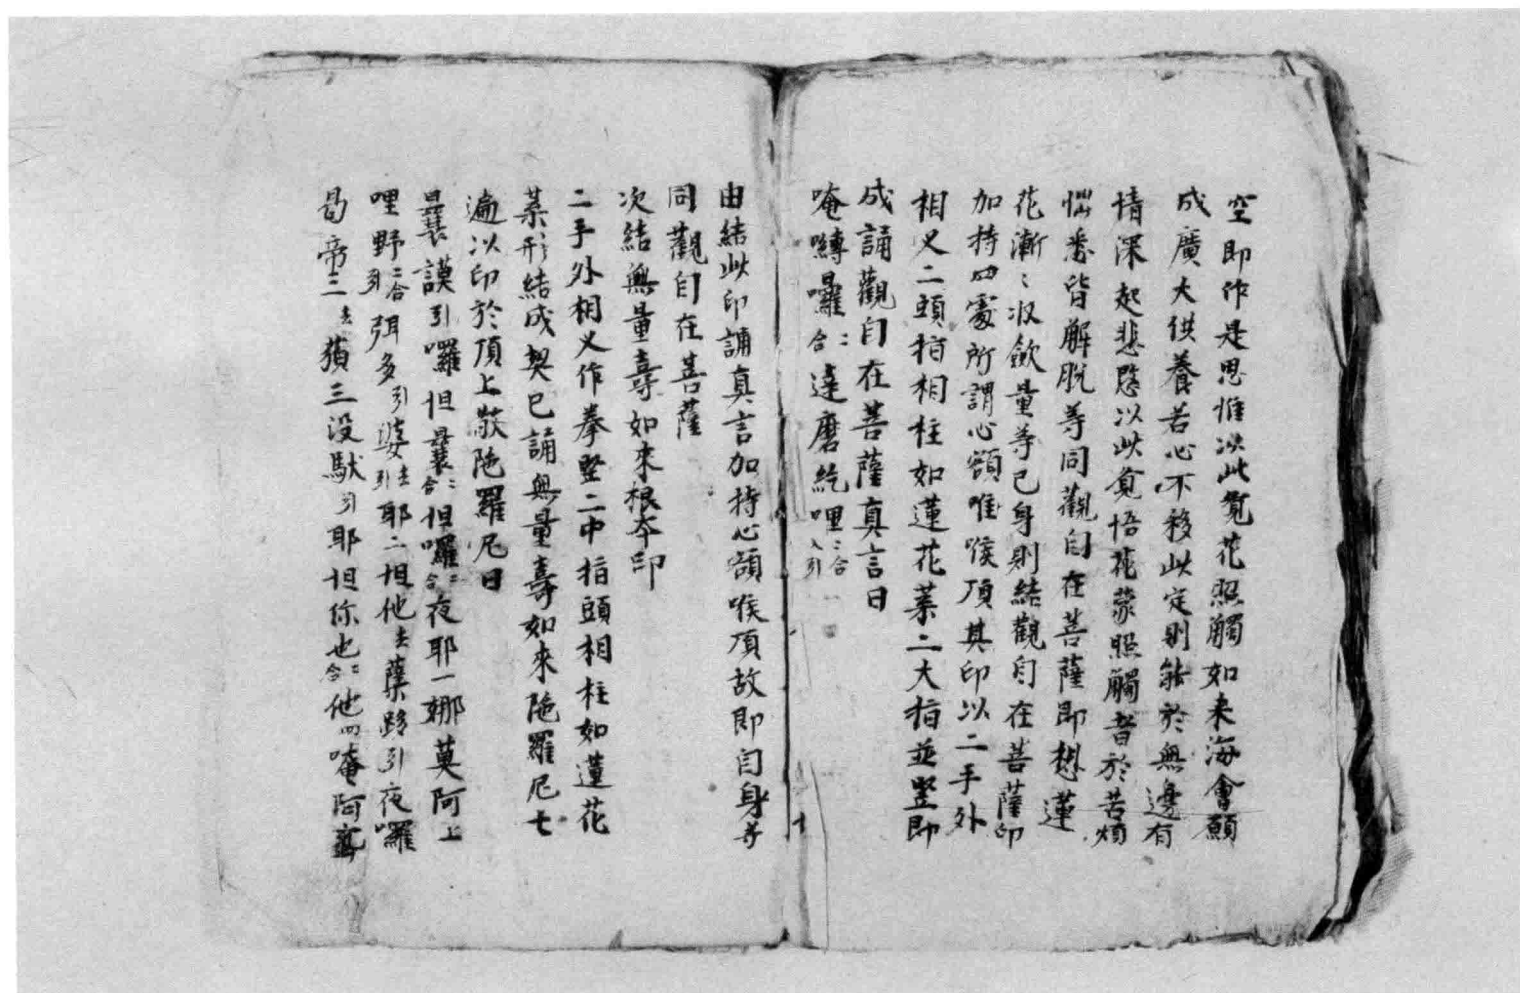 空即作是思惟以此覺花照觸如来海會願
成廣大供養若心不移此定則能於無邊有
情深起悲愍以此覺悟花蒙照觸者於苦煩
惱悉皆解脫等同觀自在菩薩即想蓮
花漸〻收斂量等已身則結觀自在菩薩印
加持四處所謂心額喉頂其印以二手外
相叉二頭指相柱如蓮花葉二大指並竪即
成誦觀自在菩薩真言曰
唵嚩囉二合達磨紇哩二合入引
由結此印誦真言加持心額喉頂故即自身等
同觀自在菩薩
次結無量壽如來根本印
二手外相叉作拳竪二中指頭相柱如蓮花
葉形結成契已誦無量壽如來陁羅尼七
遍以印於頂上散陁羅尼曰
曩謨引囉怛曩二合怛囉二合夜耶一娜莫阿上
哩野二合引弭多引婆去引耶二怛他去蘖跢引夜囉
曷帝三去藐三没馱引耶怛你也二合他四唵阿